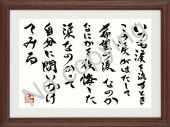 いつも涙を流すとき
この涙がはたして
希望の涙なのか
なにかを後悔した
涙なのかって
自分に問いかけ
てみる